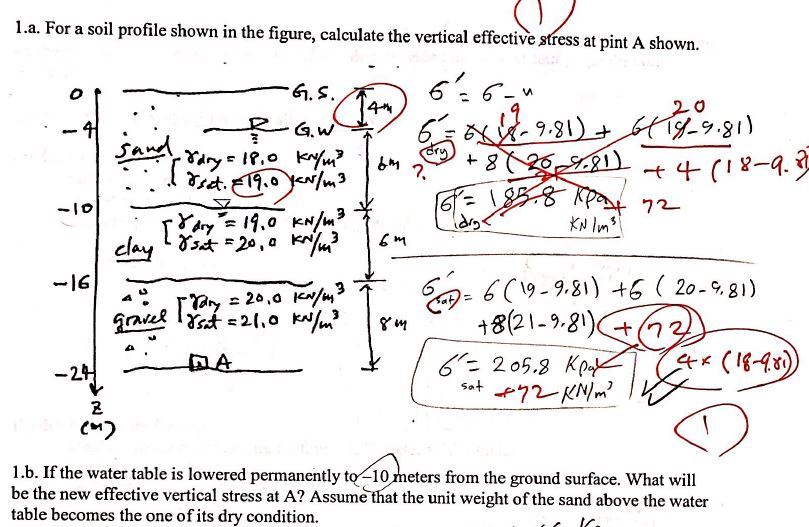 1
1.a. For a soil profile shown in the figure, calculate the vertical effective stress at pint A shown.
0
G.S.
4m
σ' = σ - u
-4
G.W
19
20
σ' = 6(18-9.81) + 6(19-9.81)
dry
?
sand
γdry = 18.0 KN/m³
γsat. = 19.0 KN/m³
6m
+ 8(20-9.81)
+ 4 (18-9.8
-10
σ' = 185.8 Kpa
+ 72
dry
KN/m³
clay
γdry = 19.0 KN/m³
γsat = 20.0 KN/m³
6m
-16
σ'sat = 6(19-9.81) + 6 (20-9.81)
gravel
γdry = 20.0 KN/m³
γsat = 21.0 KN/m³
8m
+8(21-9.81) + 72
A
σ' = 205.8 Kpa
4 * (18-9.81)
sat
+72 KN/m²
-24
1
Z
(m)
1.b. If the water table is lowered permanently to –10 meters from the ground surface. What will
be the new effective vertical stress at A? Assume that the unit weight of the sand above the water
table becomes the one of its dry condition.